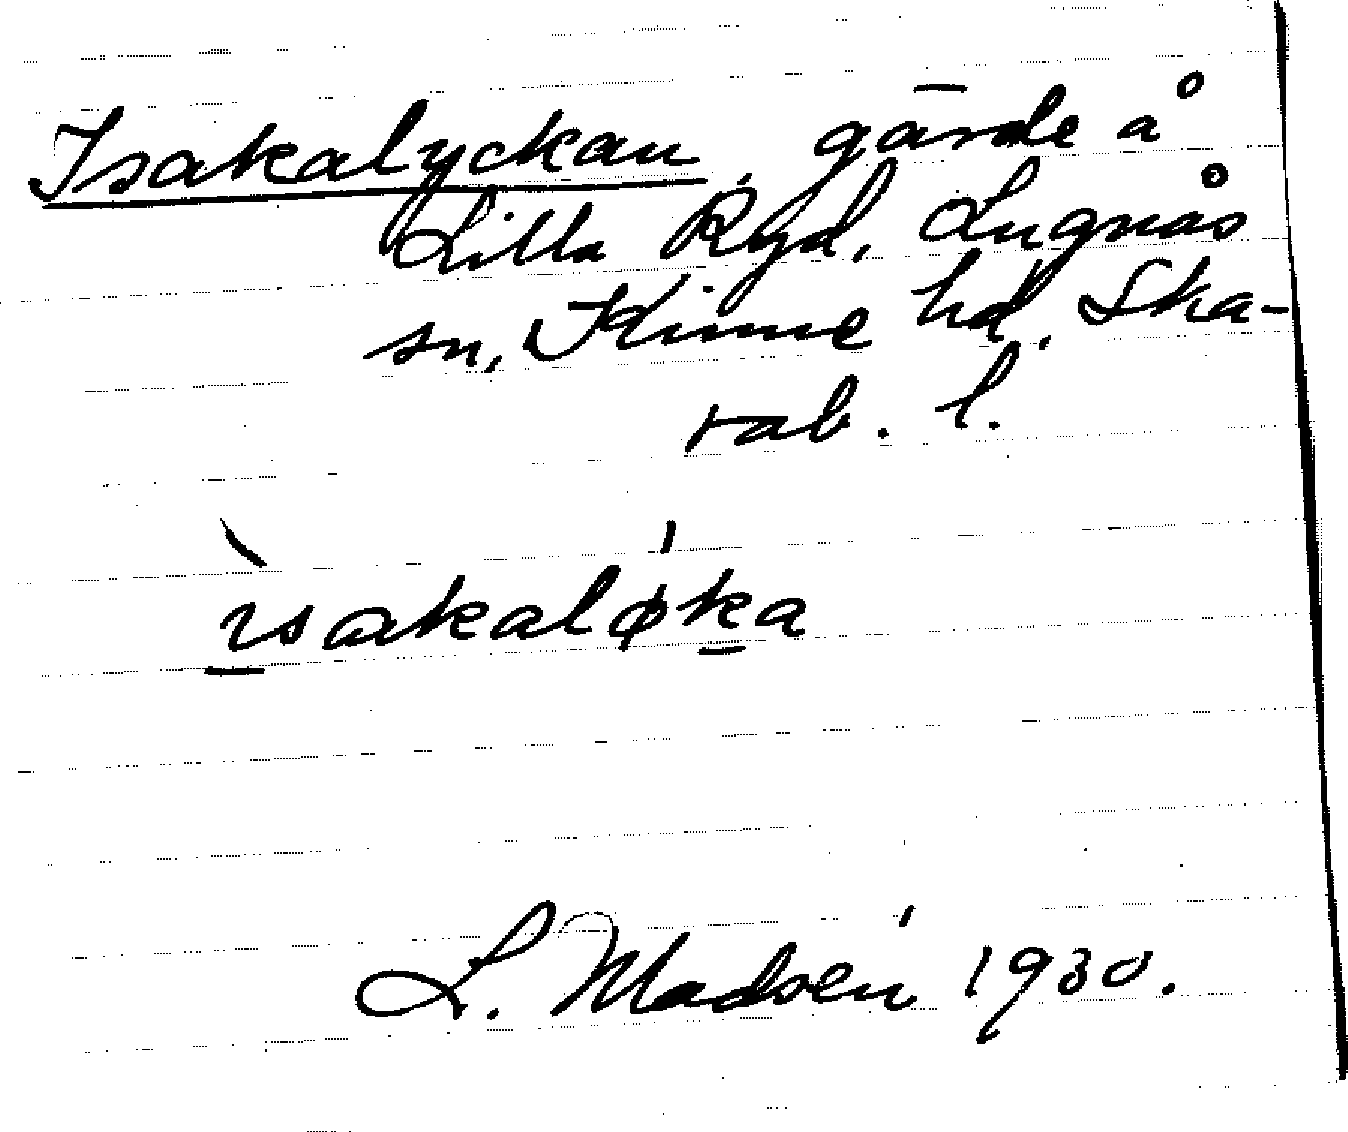 Isakalyckan, gärde å
Lilla Ryd, Lugnås
sn, Kinne hd, Ska-
rab. l.
ìsakaløka
L. Madsén 1930.